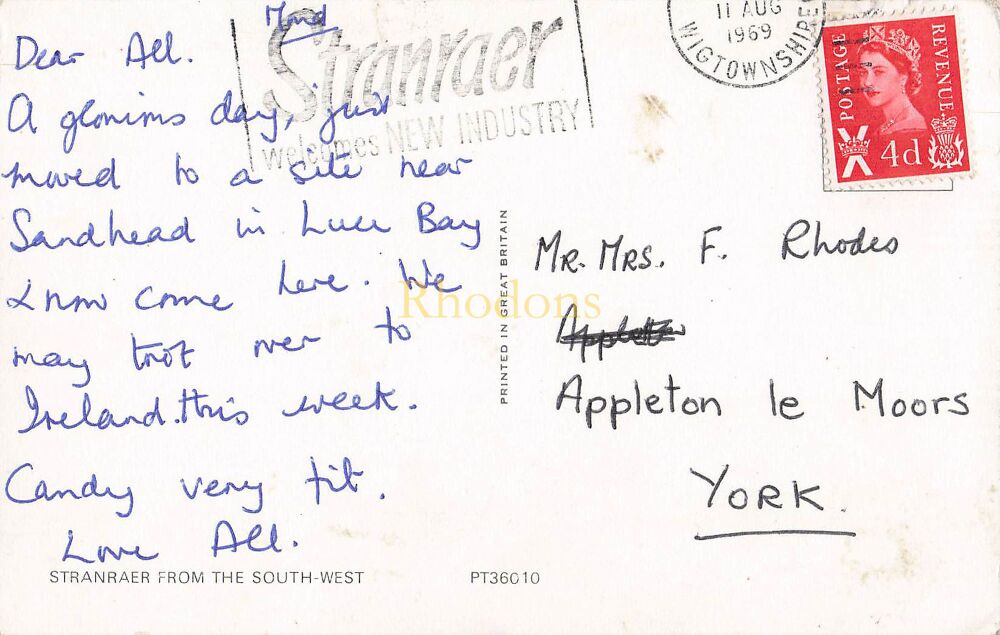 Mond
Dear All.
A glorious day, just
moved to a site near
Sandhead in Luce Bay
& now come here. We
may trot over to
Ireland. this week.
Candy very fit.
Love All.
STRANRAER FROM THE SOUTH-WEST
PT36010
PRINTED IN GREAT BRITAIN
Stranraer
welcomes NEW INDUSTRY
11 AUG
1969
WIGTOWNSHIRE
POSTAGE
REVENUE
4d
MR. MRS. F. Rhodes
Appleton le Moors
YORK.
Rhodons